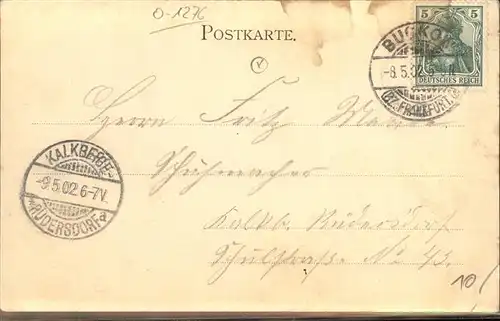 O-1276
POSTKARTE.
5 5
DEUTSCHES REICH
BUCKOW
-8.5.02
(BZ. FRANKFURT.
Herrn Fritz
Schuhmacher
Kalkb. Rüdersdorf
Schulstraße No 43.
KALKBERGE-
-9.5.02.6-7V.
RÜDERSDORF a
10